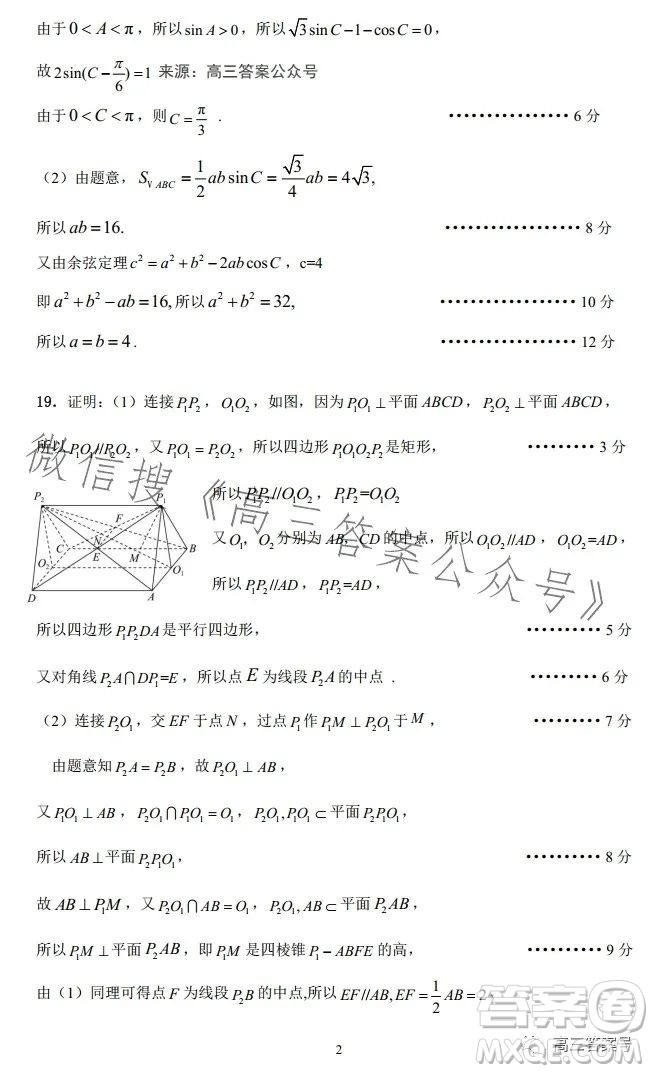 由于0 < A < π，所以sin A > 0，所以√3 sin C − 1 − cos C = 0，
故2sin(C − π/6) = 1 来源：高三答案公众号
由于0 < C < π，则C = π/3 . ················· 6 分
（2）由题意，S_{V ABC} = 1/2 ab sin C = √3/4 ab = 4√3,
所以ab = 16. ·················· 8 分
又由余弦定理c² = a² + b² − 2ab cos C，c=4
即a² + b² − ab = 16, 所以a² + b² = 32, ·················· 10 分
所以a = b = 4 . ·················· 12 分
19．证明：（1）连接P₁P₂，O₁O₂，如图，因为P₁O₁ ⊥ 平面ABCD，P₂O₂ ⊥ 平面ABCD，
所以P₁O₁//P₂O₂，又P₁O₁ = P₂O₂，所以四边形P₁O₁O₂P₂是矩形， ·········· 3 分
所以P₁P₂//O₁O₂，P₁P₂=O₁O₂
又O₁，O₂分别为AB，CD的中点，所以O₁O₂//AD，O₁O₂=AD，
所以P₁P₂//AD，P₁P₂=AD，
P₂ P₁ F C N M B E O₂ O₁ D A
所以四边形P₁P₂DA是平行四边形， ·········· 5 分
又对角线P₂A∩DP₁=E，所以点E为线段P₂A的中点 . ·········· 6 分
（2）连接P₂O₁，交EF于点N，过点P₁作P₁M ⊥ P₂O₁于M， ·········· 7 分
由题意知P₂A = P₂B，故P₂O₁ ⊥ AB，
又P₁O₁ ⊥ AB，P₂O₁∩P₁O₁ = O₁，P₂O₁,P₁O₁ ⊂ 平面P₂P₁O₁，
所以AB ⊥ 平面P₂P₁O₁， ·········· 8 分
故AB ⊥ P₁M，又P₂O₁∩AB = O₁，P₂O₁, AB ⊂ 平面P₂AB，
所以P₁M ⊥ 平面P₂AB，即P₁M是四棱锥P₁ − ABFE的高， ·········· 9 分
由（1）同理可得点F为线段P₂B的中点,所以EF//AB, EF = 1/2 AB = 2
2
微信搜《高三答案公众号》
答案圈
高三答案号